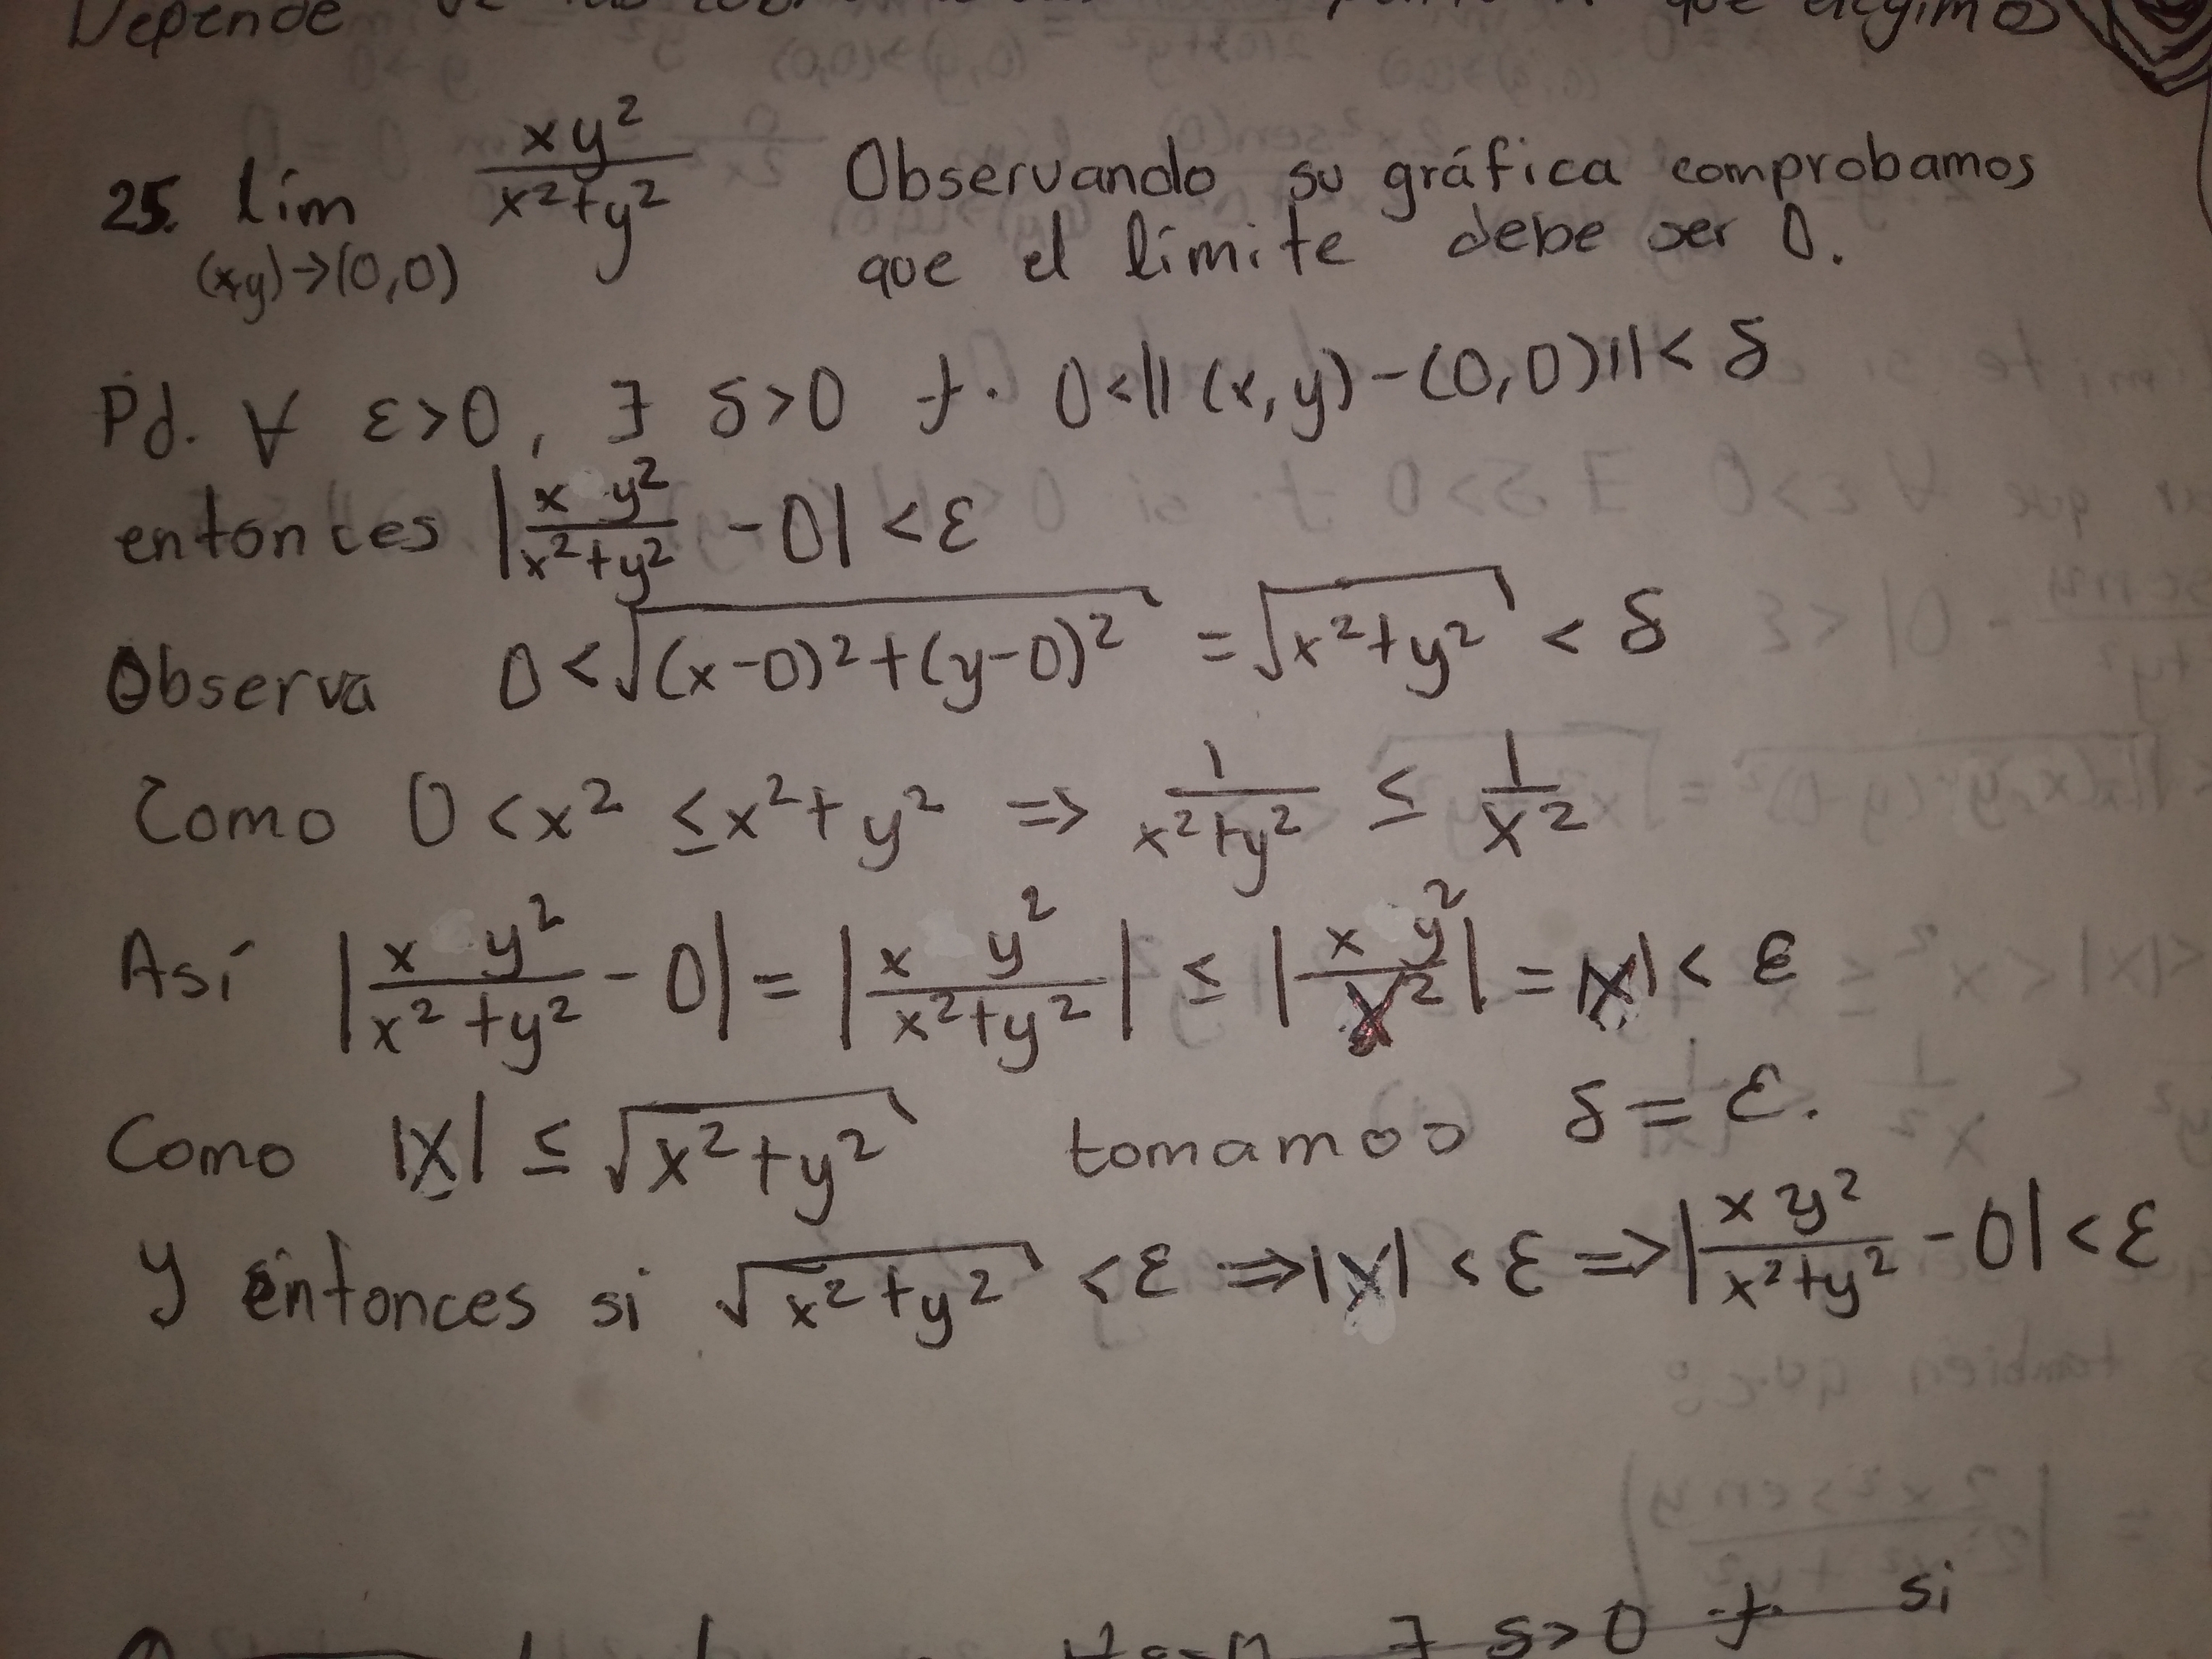 Depende
25. lím (x,y)→(0,0) xy²/(x²+y²) Observando su gráfica comprobamos
que el límite debe ser 0.
Pd. ∀ ε>0, ∃ δ>0 t. 0<||(x,y)-(0,0)||<δ
entonces |x y²/(x²+y²) - 0| < ε
Observa 0<√((x-0)²+(y-0)²) = √(x²+y²) < δ
Como 0<x² ≤ x²+y² ⇒ 1/(x²+y²) ≤ 1/x²
Así |x y²/(x²+y²) - 0| = |x y²/(x²+y²)| ≤ |x y²/x²| = |x| < ε
Como |x| ≤ √(x²+y²) tomamos δ=ε.
y entonces si √(x²+y²) <ε ⇒ |x| < ε ⇒ |xy²/(x²+y²) - 0| < ε
∃ δ>0 t. si